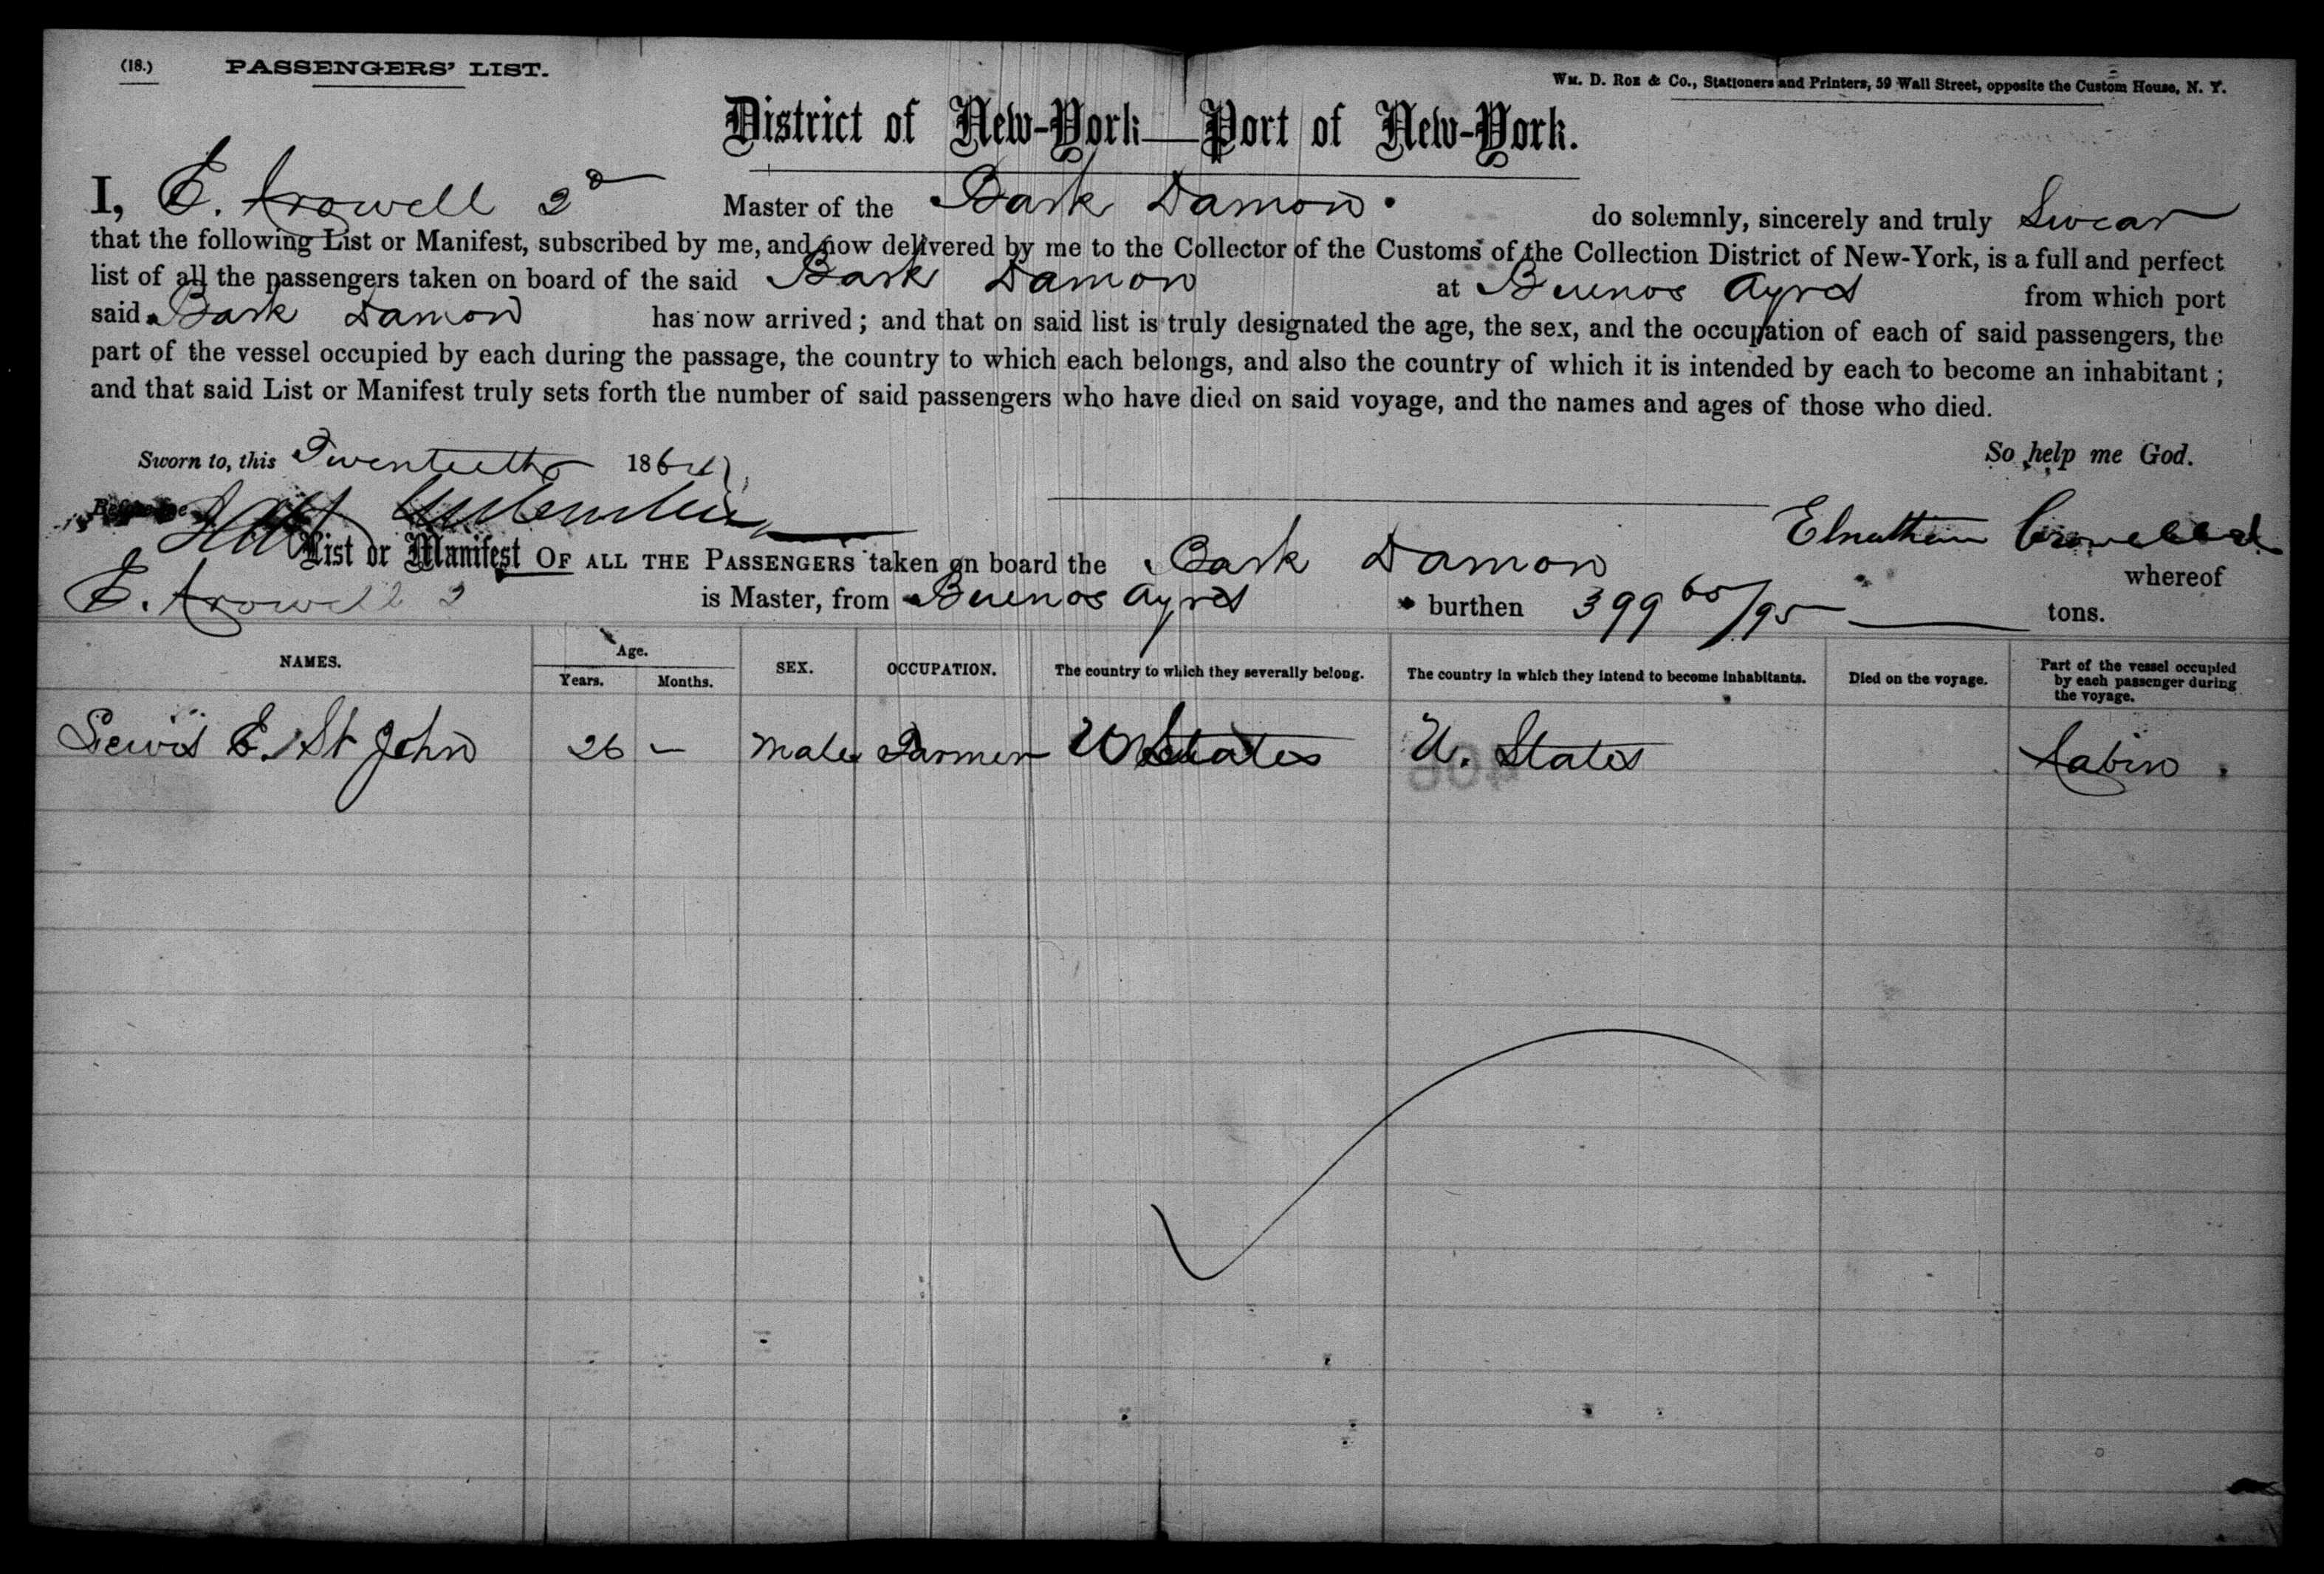 (18.) PASSENGERS' LIST.
Wm. D. Roe & Co., Stationers and Printers, 59 Wall Street, opposite the Custom House, N. Y.
District of New-York—Port of New-York.
I, E. Crowell 2d Master of the Bark Damon. do solemnly, sincerely and truly Swear
that the following List or Manifest, subscribed by me, and now delivered by me to the Collector of the Customs of the Collection District of New-York, is a full and perfect
list of all the passengers taken on board of the said Bark Damon at Buenos Ayres from which port
said Bark Damon has now arrived; and that on said list is truly designated the age, the sex, and the occupation of each of said passengers, the
part of the vessel occupied by each during the passage, the country to which each belongs, and also the country of which it is intended by each to become an inhabitant;
and that said List or Manifest truly sets forth the number of said passengers who have died on said voyage, and the names and ages of those who died.
Sworn to, this Twentieth 186 So help me God.
Before me
Elnathan Crowell 2d
List or Manifest OF ALL THE PASSENGERS taken on board the Bark Damon whereof
E. Crowell 2 is Master, from Buenos Ayres burthen 399 65/95 tons.
NAMES. Age. Years. Months. SEX. OCCUPATION. The country to which they severally belong. The country in which they intend to become inhabitants. Died on the voyage. Part of the vessel occupied by each passenger during the voyage.
Lewis E. St John 26 — Male Farmer U States U. States Cabin